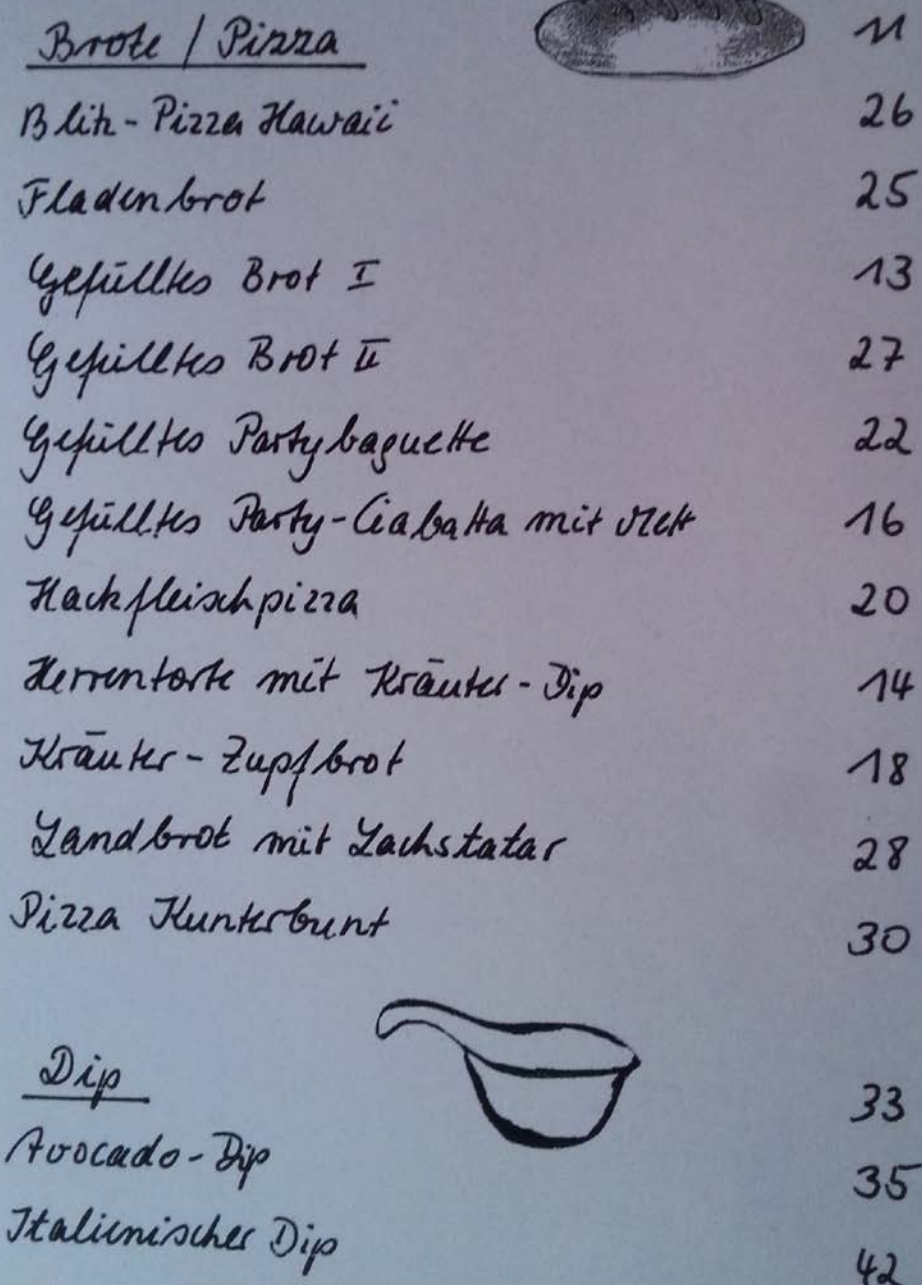 Brote / Pizza 11
Blitz-Pizza Hawaii 26
Fladenbrot 25
Gefülltes Brot I 13
Gefülltes Brot II 27
Gefülltes Partybaguette 22
Gefülltes Party-Ciabatta mit Mett 16
Hackfleischpizza 20
Herrentorte mit Kräuter-Dip 14
Kräuter-Zupfbrot 18
Landbrot mit Lachstatar 28
Pizza Kunterbunt 30
Dip 33
Avocado-Dip 35
Italienischer Dip 42